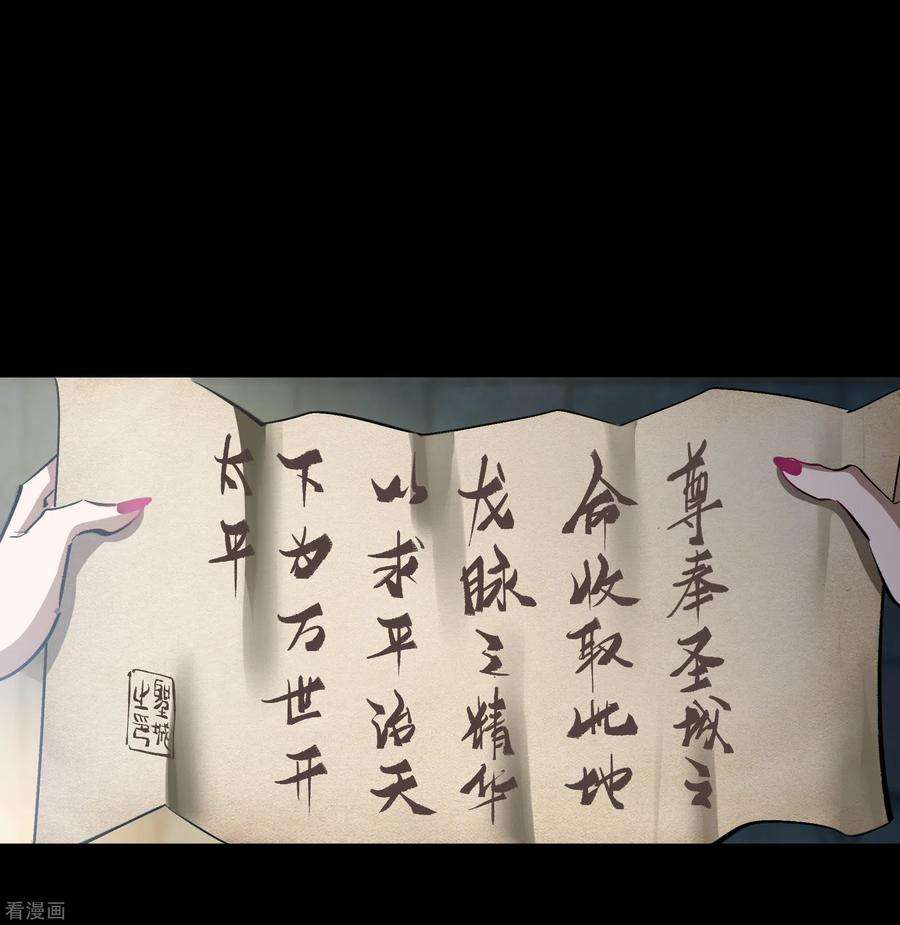 尊奉圣城之
命收取此地
龙脉之精华
以求平治天
下为万世开
太平
聖城
之印
看漫画